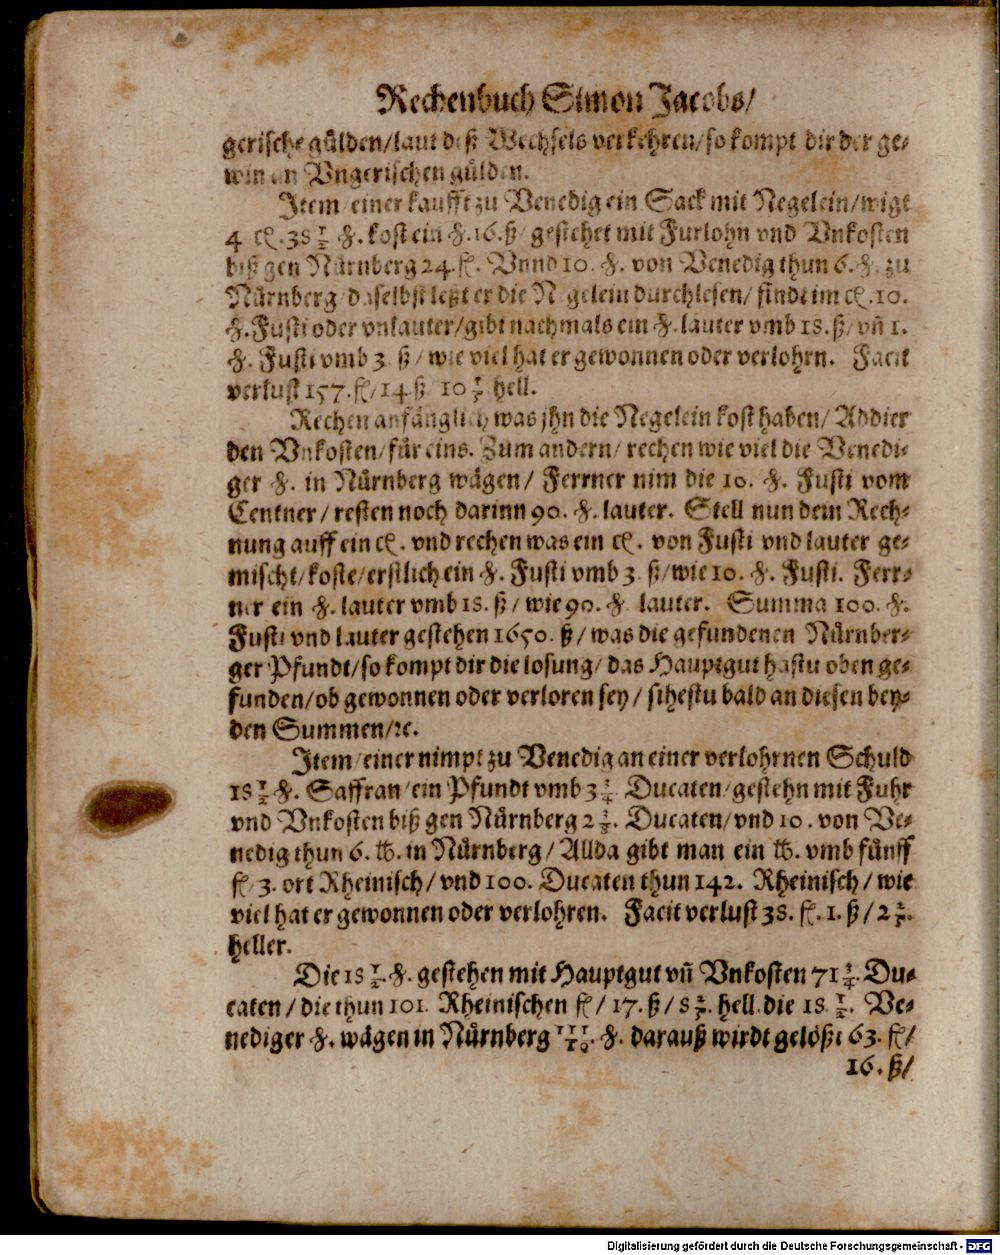 Rechenbuch Simon Jacobs/
gerische gülden/laut deß Wechsels verkehren/so kompt dir der ge⸗
win an Vngerischen gülden.
Item einer kaufft zu Venedig ein Sack mit Negelein/wigt
4 ct. 38 1/2 ℔. kost ein ℔. 16. ß/ gestehet mit Furlohn vnd Vnkosten
biß gen Nürnberg 24. fl. Vnnd 10. ℔. von Venedig thun 6. ℔. zu
Nürnberg/daselbst leßt er die Negelein durchlesen/ findt im ct. 10.
℔. Fusti oder vnlauter/gibt nachmals ein ℔. lauter vmb 18. ß/ vñ 1.
℔. Fusti vmb 3. ß/ wie viel hat er gewonnen oder verlohrn. Facit
verlust 157. fl/14 ß 10 2/7 hell.
Rechen anfänglich was jhn die Negelein kost haben/ Addier
den Vnkosten/für eins. Zum andern/ rechen wie viel die Venedi⸗
ger ℔. in Nürnberg wägen/ Ferrner nim die 10. ℔. Fusti vom
Centner/ resten noch darinn 90. ℔. lauter. Stell nun dein Rech⸗
nung auff ein ct. vnd rechen was ein ct. von Fusti vnd lauter ge⸗
mischt/koste/erstlich ein ℔. Fusti vmb 3. ß/wie 10. ℔. Fusti. Ferr⸗
ner ein ℔. lauter vmb 18. ß/ wie 90. ℔. lauter. Summa 100. ℔.
Fusti vnd lauter gestehen 1650. ß/ was die gefundenen Nürnber⸗
ger Pfundt/so kompt dir die losung/ das Hauptgut hastu oben ge⸗
funden/ob gewonnen oder verloren sey/ sihestu bald an diesen bey⸗
den Summen/ꝛc.
Item/einer nimpt zu Venedig an einer verlohrnen Schuld
18 1/2 ℔. Saffran/ein Pfundt vmb 3 3/4 Ducaten/gestehn mit Fuhr
vnd Vnkosten biß gen Nürnberg 2 3/8. Ducaten/vnd 10. von Ve⸗
nedig thun 6. ℔. in Nürnberg/ Allda gibt man ein ℔. vmb fünff
fl/3. ort Rheinisch/ vnd 100. Ducaten thun 142. Rheinisch/ wie
viel hat er gewonnen oder verlohren. Facit verlust 38. fl. 1. ß/2 2/5.
heller.
Die 18 1/2. ℔. gestehen mit Hauptgut vñ Vnkosten 71 3/4. Du⸗
caten/ die thun 101. Rheinischen fl/ 17. ß/ 8 2/5. hell. die 18 1/2. Ve⸗
nediger ℔. wägen in Nürnberg 111/10. ℔. darauß wirdt gelößt 63. fl/
16. ß/
Digitalisierung gefördert durch die Deutsche Forschungsgemeinschaft - DFG